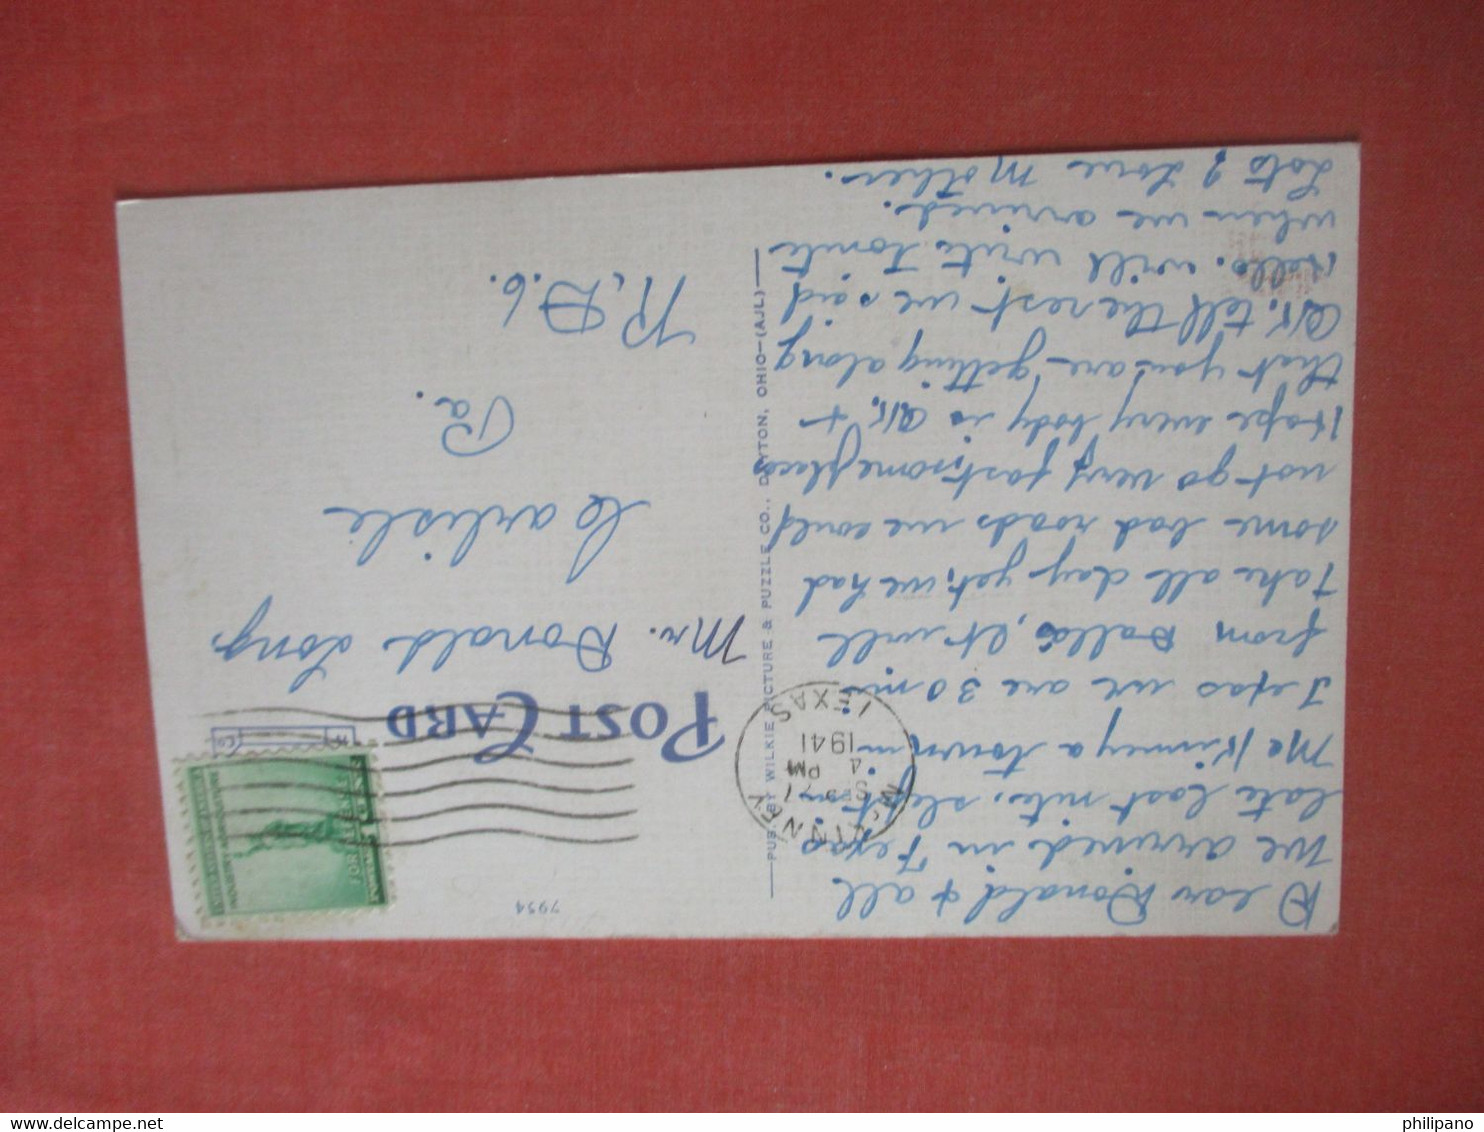 Dear Donald & all
We arrived in Texas
late last nite, slept in
McKinney a town in
Texas we are 30 mi
from Dallas, it will
take all day yet, we had
some bad roads we could
not go very fast some places
Hope every body is O.K. +
that you are getting along
O.K. tell the rest we said
Hello. will write tonite
when we arrived.
Lots of love Mother.
McKINNEY
SEP 7
4 PM
1941
TEXAS
PUB. BY WILKIE PICTURE & PUZZLE CO., DAYTON, OHIO—(AJL)
7954
POST CARD
Mr. Donald Long
Carlisle
Pa.
R.D.6.
FOR DEFENSE
INDUSTRY AGRICULTURE
philipano